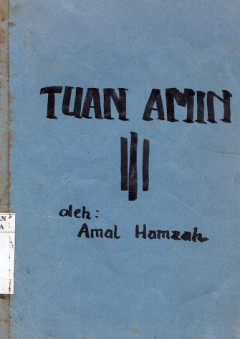 TUAN AMIN
oleh:
Amal Hamzah
N
A